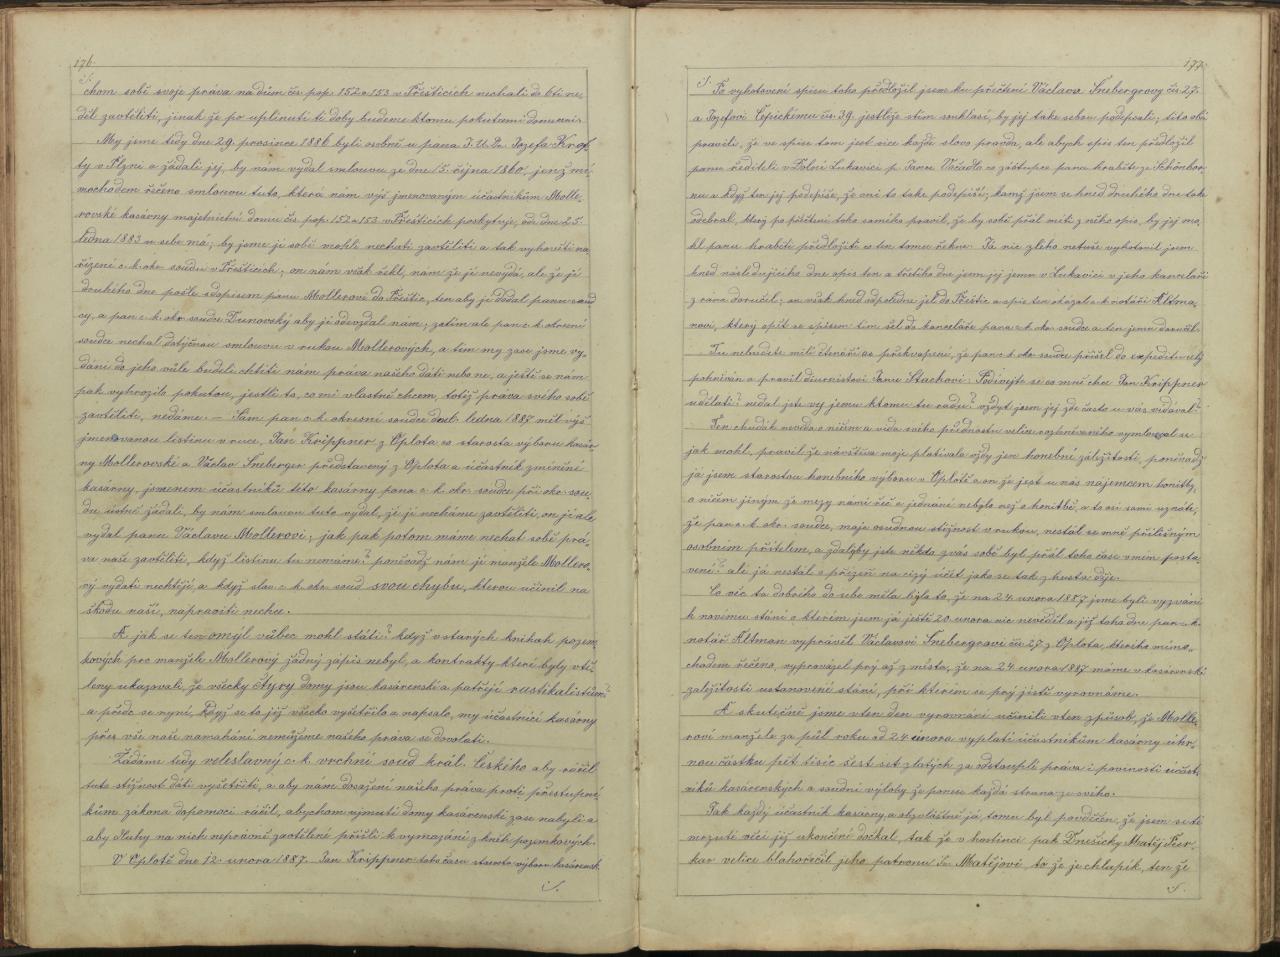 176.
chom sobě svoje práva na dům čís. pop. 152 a 153 v Přešticích nechali do 6ti ne-
děl zavtěliti, jinak že po uplinutí té doby budeme ktomu pokutami donuceni.
My jsme tedy dne 29. prosince 1886 byli osobně u pana J. U. Dr. Jozefa Krof-
ty v Plzni a žádali jej, by nám vydal smlouvu ze dne 15. října 1860, jenž mi-
mochodem řečeno smlouvu tuto, která nám výš jmenovaným účastníkům Molle-
rovské kasárny majetnictví domu čís. pop. 152 a 153 v Přešticích poskytuje, ode dne 25.
ledna 1883 u sebe má, by jsme je sobě mohli nechati zavtěliti a tak vyhověti na-
řízení c. k. okr. soudu v Přešticích, on nám však řekl, nám že ji nevydá, ale že ji
druhého dne pošle sdopisem panu Mollerovi do Přeštic, ten aby ji dodal panu soud-
cy, a pan c. k. okr. soudce Dunovský aby ji odevzdal nám, zatím ale pan c. k. okresní
soudce nechal dotýčnou smlouvu v rukou Mollerových, a tím my zase jsme vy-
dáni do jeho vůle budeli chtíti nám práva našeho dáti nebo ne, a ještě se nám
pak vyhrozilo pokutou, jestli to, co mi vlastně chcem, totéž práva svého sobě
zavtěliti, nedáme. — Sám pan c. k. okresní soudce dne 1. ledna 1887 měl výš
jmenovanou listinu v ruce, Jan Krippner z Oplota co starosta výboru kasár-
ny Mollerovské a Václav Sneberger představený z Oplota a účastník zmíněné
kasárny, jmenem účastníků této kasárny pana c. k. okr. soudce při okr. sou-
du ústně žádali, by nám smlouvu tuto vydal, že ji necháme zavtěliti, on ji ale
vydal panu Václavu Mollerovi, jak pak potom máme nechat sobě prá-
va naše zavtěliti, když listinu tu nemáme? poněvadž nám ji manželé Mollero-
vý vydati nechtějí, a když slav. c. k. okr. soud svou chybu, kterou učinil na
škodu naší, napraviti nechce.
A jak se ten omýl vůbec mohl státi? když v starých knihách pozem-
kových pro manžele Mollerový žádný zápis nebyl, a kontrakty které byly vtě-
leny ukazovali, že všecky čtyry domy jsou kasárenské a patřejí rustikalistům?
a přede se nyní, když se to již všecko vyšetřilo a napsalo, my účastníci kasárny
přes vše naše namahání nemůžeme našeho práva se dovolati.
Žádáme tedy veleslavný c. k. vrchní soud král. Českého aby ráčil
tuto stížnost dáti vyšetřiti, a aby nám dosažení našeho práva proti přestupní-
kům zákona dopomoci ráčil, abychom ujmuté domy kasárenské zase nabyli a
aby dluhy na nich neprávně zavtělené přišli k vymazání z kněh pozemkových.
V Oplotě dne 12. února 1887. Jan Krippner toho času starosta výboru kasárensk.
177.
Po vyhotovení spisu toho předložil jsem ku přečtení Václavu Snebergrovy čís. 27.
a Jozefovi Čepickému čís. 39. jestliže stím souhlasí, by jej také sebou podepsali; tito oba
pravili, že ve spise tom jest sice každé slovo pravda, ale abych spis ten předložil
panu řediteli v Dolní Lukavici p. Janu Váčadlo co zástupce pana hraběte ze Schönbor-
nu a když ten jej podepíše, že oni to také podepíší; kamž jsem se hned druhého dne také
odebral, který po přečtení toho samého pravil, že by sobě přál míti z něho opis, by jej mo-
hl panu hraběti předložiti co ten tomu řekne. Já nic zlého netuše vyhotovil jsem
hned následujícího dne opis ten a třetího dne jsem jej jemu v Lukavici v jeho kanceláři
z rána doručil; on však hned odpoledne jel do Přeštic a opis ten okázal c. k. notáři Altma-
novi, který opět se spisem tím šel do kanceláře pana c. k. okr. soudce a ten jemu doručil.
Tu nebudete milí čtenáři as překvapení, že pan c. k. okr. soudce přišel do expeditu celý
pohněván a pravil diurnistovi Janu Stachovi: Podívejte se co mně chce Jan Krippner
udělati? nedal jste vy jemu ktomu tu radu? vždyť jsem jej zde často u vás vídával?
Ten chudák nevěda o ničem a vida svého přednostu velice rozhněvaného vymlouval se
jak mohl, pravil že návštěva moje platívala vždy jen honebné záležitosti, poněvadž
já jsem starostou honebního výboru v Oplotě a on že jest u nás nájemcem honitby,
o ničem jiným že mezy námi řeč a jednání nebylo než o honitbě, a to asi sami uznáte,
že pan c. k. okr. soudce, maje osudnou stížnost v rukou, nestál se mně přílišným
osobním přítelem, a zdalyby jste někdo z vás sobě byl přál toho čase v mém posta-
vení? ale já nestál o přízeň na cizý účet jako se tak z husta děje.
Co víc to dobrého do sebe mělo bylo to, že na 24. února 1887 jsme byli vyzváni
k novému stání o kterém jsem já ještě 20. února nic nevěděl a již toho dne pan c. k.
notář Altman vyprávěl Václavovi Snebergrovi čís. 27 z Oplota, kterého mimo-
chodem řečeno, vyprovázel prý až z místa, že na 24. února 1887 máme v kasárenské
zaležitosti ustanovené stání, při kterém se prý jistě vyrovnáme.
A skutečně jsme v ten den vyrovnání učinili v ten způsob, že Molle-
rovi manželé za půl roku od 24. února vyplatí účastníkům kasárny úhr-
nou částku pět tisíc šest set zlatých za odstouplé práva i povinosti účast-
níků kasárenských a soudní výlohy že ponese každá strana ze svého.
Tak každý účastník kasárny, a obzvláštně já tomu byl povděčen, že jsem se té
mrzuté věci již ukončení dočkal, tak že v hostinci pak Dnešický Matěj Peer-
kar velice blahořečil jeho patronu Sv. Matějovi, to že je chlapík, ten že